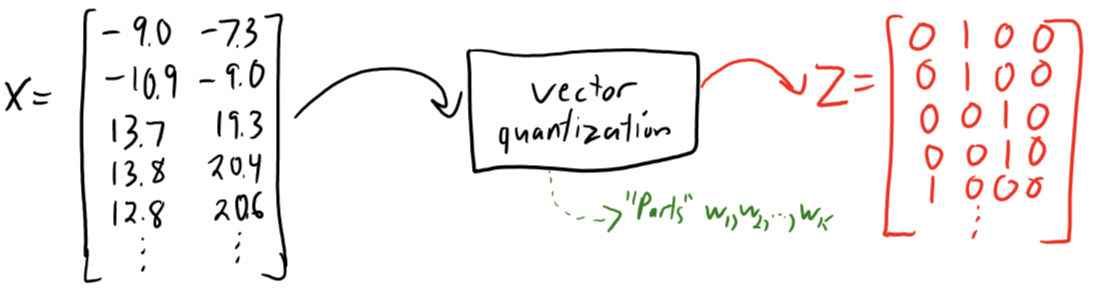 X = [-9.0 -7.3
-10.9 -9.0
13.7 19.3
13.8 20.4
12.8 20.6
⋮ ⋮]
vector
quantization
"Parts" w₁, w₂, ..., wₖ
Z = [0 1 0 0
0 1 0 0
0 0 1 0
0 0 1 0
1 0 0 0
⋮]